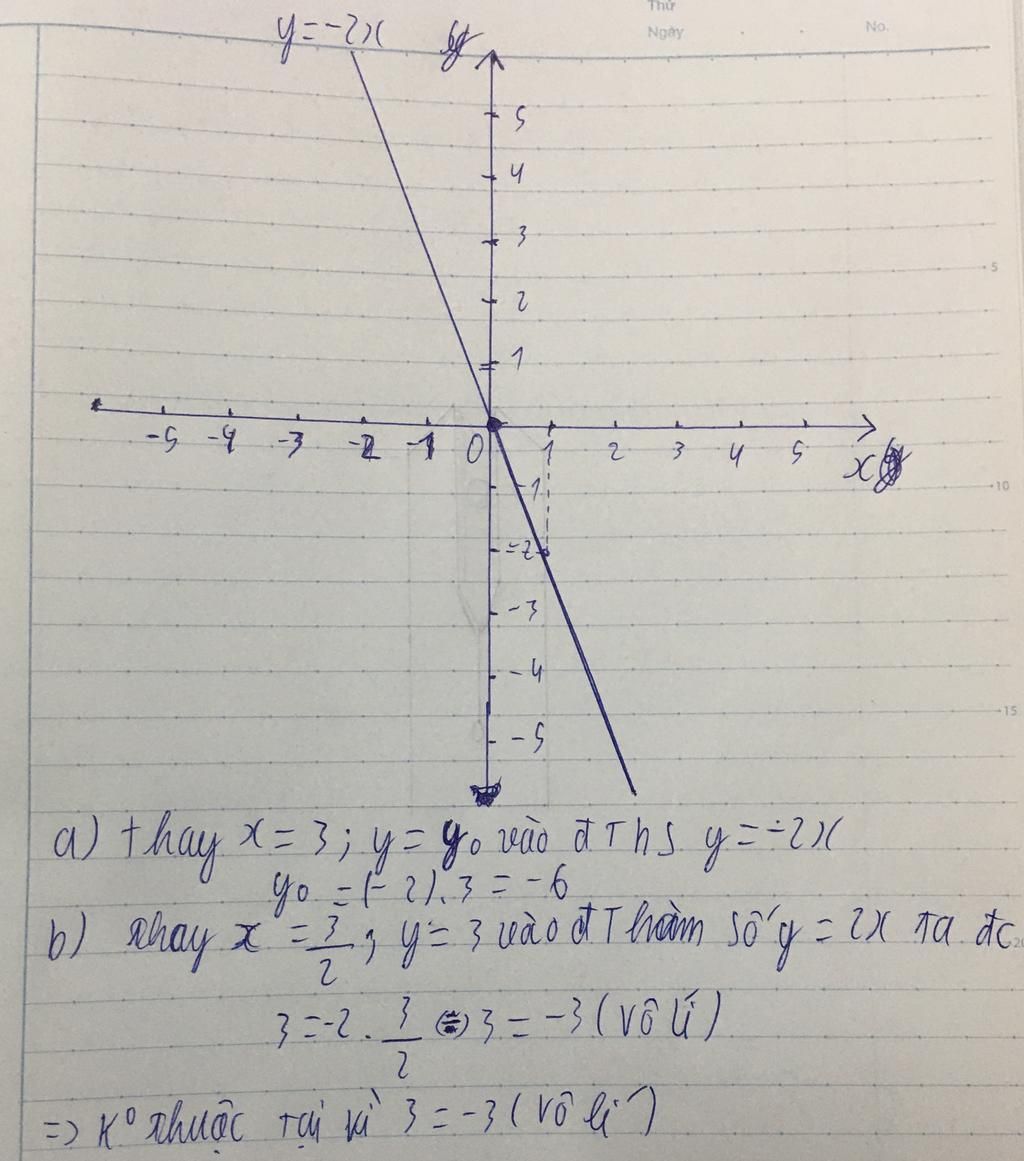 Thứ
Ngày No.
y = -2x y
5
4
3
2
1
-5 -4 -3 -2 -1 0 1 2 3 4 5
x
-1
-2
-3
-4
-5
5
10
15
20
a) thay x = 3; y = y₀ vào đThs y = -2x
y₀ = (-2).3 = -6
b) thay x = 3/2; y = 3 vào đThàm số y = 2x ta đc
3 = -2 . 3/2 ⇔ 3 = -3 (vô lí)
=> K⁰ thuộc tại vì 3 = -3 (vô lí)